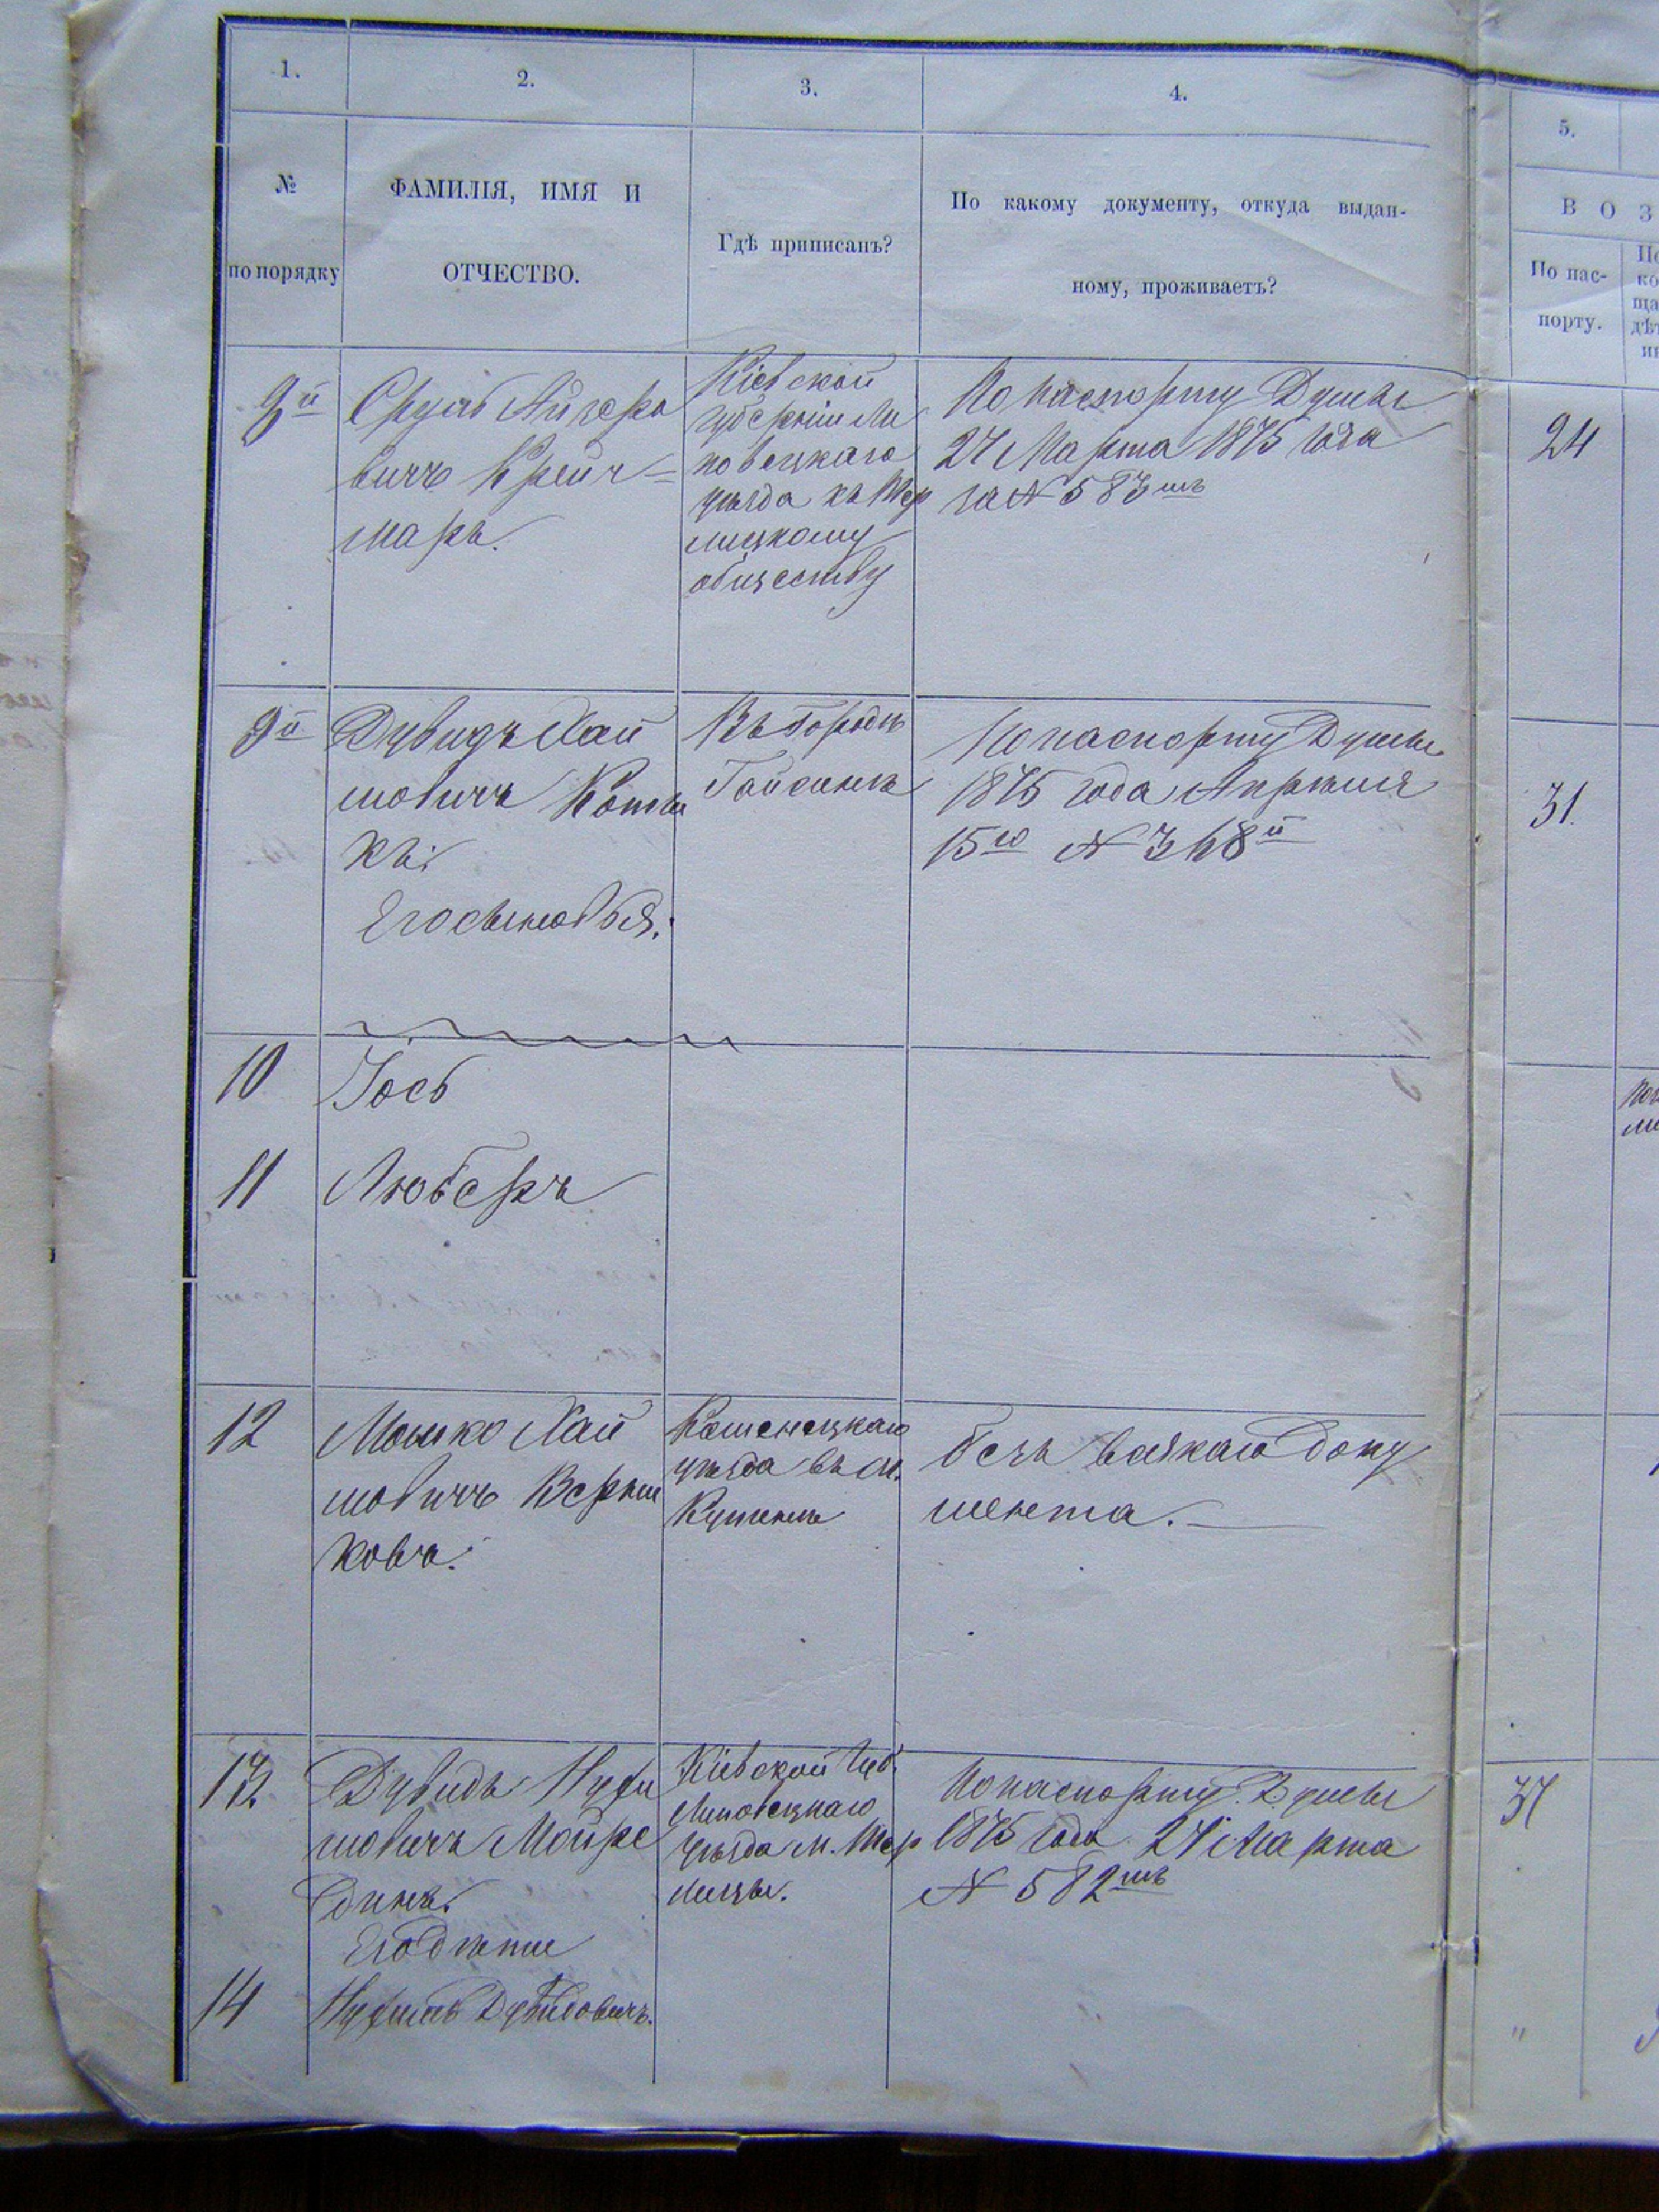 1.
2.
3.
4.
5.
№
по порядку
ФАМИЛІЯ, ИМЯ И
ОТЧЕСТВО.
Гдѣ приписанъ?
По какому документу, откуда выдан-
ному, проживаетъ?
В О З
По пас-
порту.
9й
Сруль
вичъ Крейч-
маръ.
Кіевской
губерніи Ли
повецкаго
уѣзда къ Тер
лицкому
обществу
По паспорту Думы
27 Марта 1875 года
за № 583мъ
24
9й
Дувидъ Хай
мовичъ
Его сыновья:
Въ городѣ
Гайсинѣ
По паспорту Думы
1875 года Апрѣля
15го № 368й
31.
10
Іось
11
Люберъ
12
Мошко Хай
мовичъ Верни
ковъ.
уѣзда въ м.
безъ всякаго доку
мента.
13
Дувидъ Нухи
мовичъ Мойре
динъ.
Его дѣти
Кіевской Губ.
Липовецкаго
уѣзда м. Тер
лицы.
По паспорту Думы
1875 года 27 Марта
№ 582мъ
37
14
Нухимъ Дувидовичъ.
"